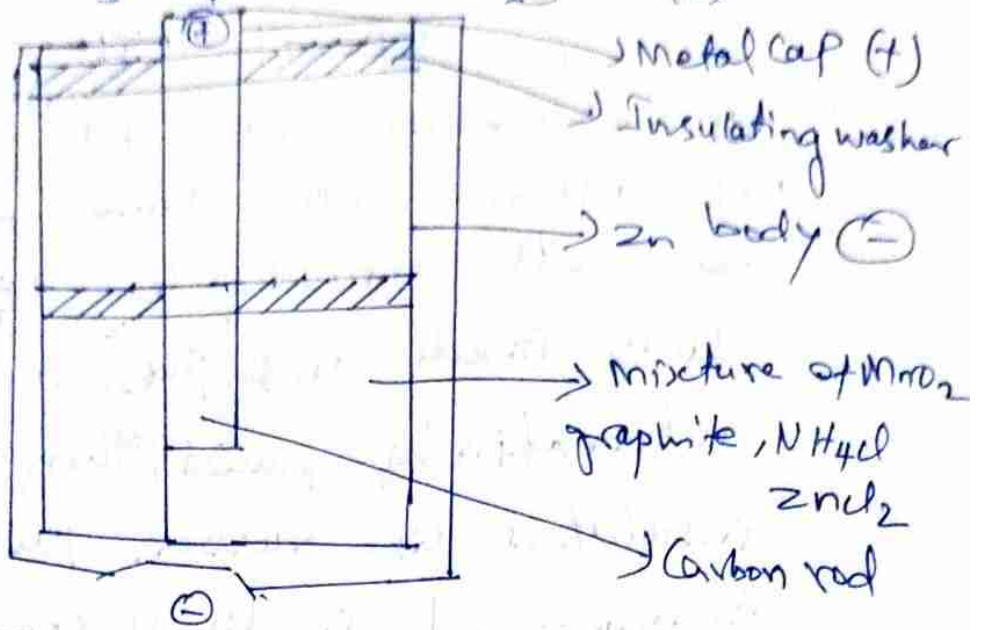 +
Metal Cap (+)
Insulating washer
Zn body -
Mixture of MnO2
graphite, NH4Cl
ZnCl2
Carbon rod
-